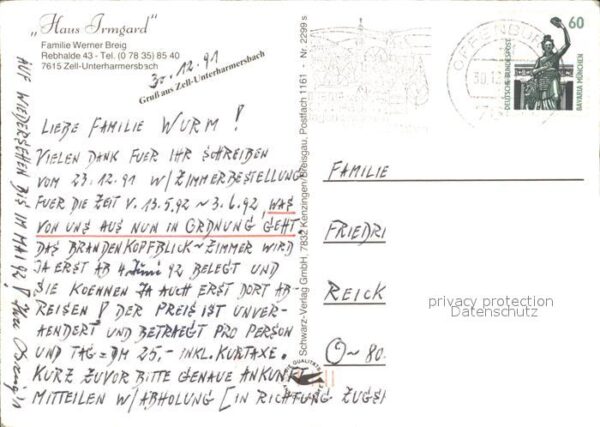 „Haus Irmgard"
Familie Werner Breig
Rebhalde 43 - Tel. (0 78 35) 85 40
7615 Zell-Unterharmersbach
30.12.91
Gruß aus Zell-Unterharmersbach
LIEBE FAMILIE WURM !
VIELEN DANK FUER IHR SCHREIBEN
VOM 23.12.91 W/ZIMMERBESTELLUNG
FUER DIE ZEIT V. 13.5.92 ~ 3.6.92, WAS
VON UNS AUS NUN IN ORDNUNG GEHT
DAS BRANDENKOPFBLICK~ZIMMER WIRD
JA ERST AB 4. Juni 92 BELEGT UND
SIE KOENNEN JA AUCH ERST DORT AB-
REISEN ! DER PREIS IST UNVER-
AENDERT UND BETRAEGT PRO PERSON
UND TAG = DM 25,- INKL. KURTAXE.
KURZ ZUVOR BITTE GENAUE ANKUNFT
MITTEILEN W/ABHOLUNG [IN RICHTUNG ZUGS
AUF WIEDERSEHEN BIS IM MAI 92 ! Ihre Breig's
Schwarz-Verlag GmbH, 7832 Kenzingen/Breisgau, Postfach 1161 · Nr. 2299 s
QUALITÄTS
OFFENBURG
30.12
60
DEUTSCHE BUNDESPOST
BAVARIA MÜNCHEN
FAMILIE
FRIEDRI
REICK
O~80
privacy protection
Datenschutz